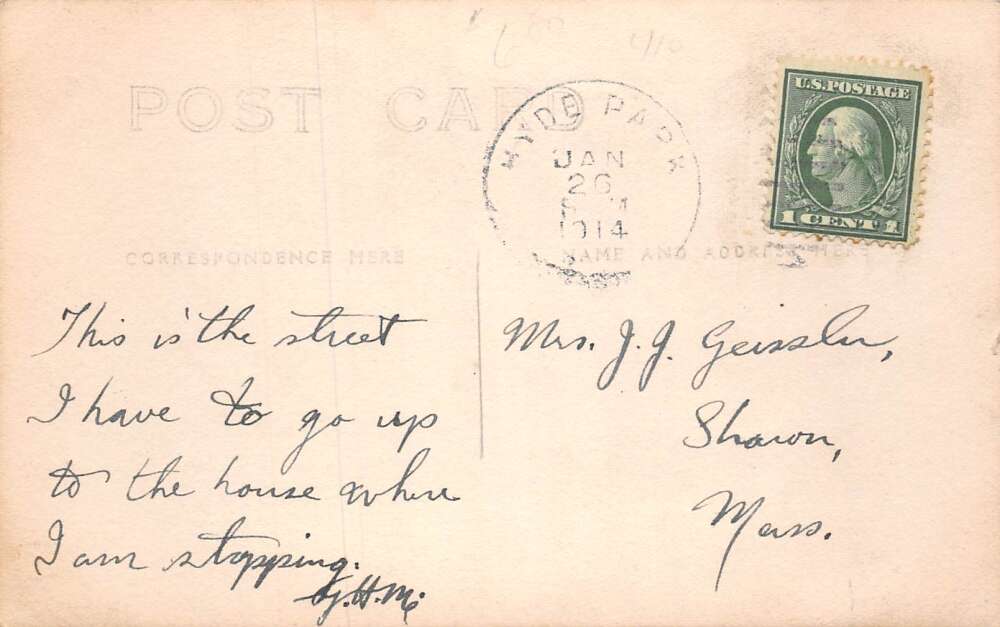 POST CARD
HYDE PARK
JAN
26
1914
U.S. POSTAGE
1 CENT 1
CORRESPONDENCE HERE
NAME AND ADDRESS HERE
This is the street
I have to go up
to the house where
I am stopping.
Mrs. J. J. Geissler,
Sharon,
Mass.